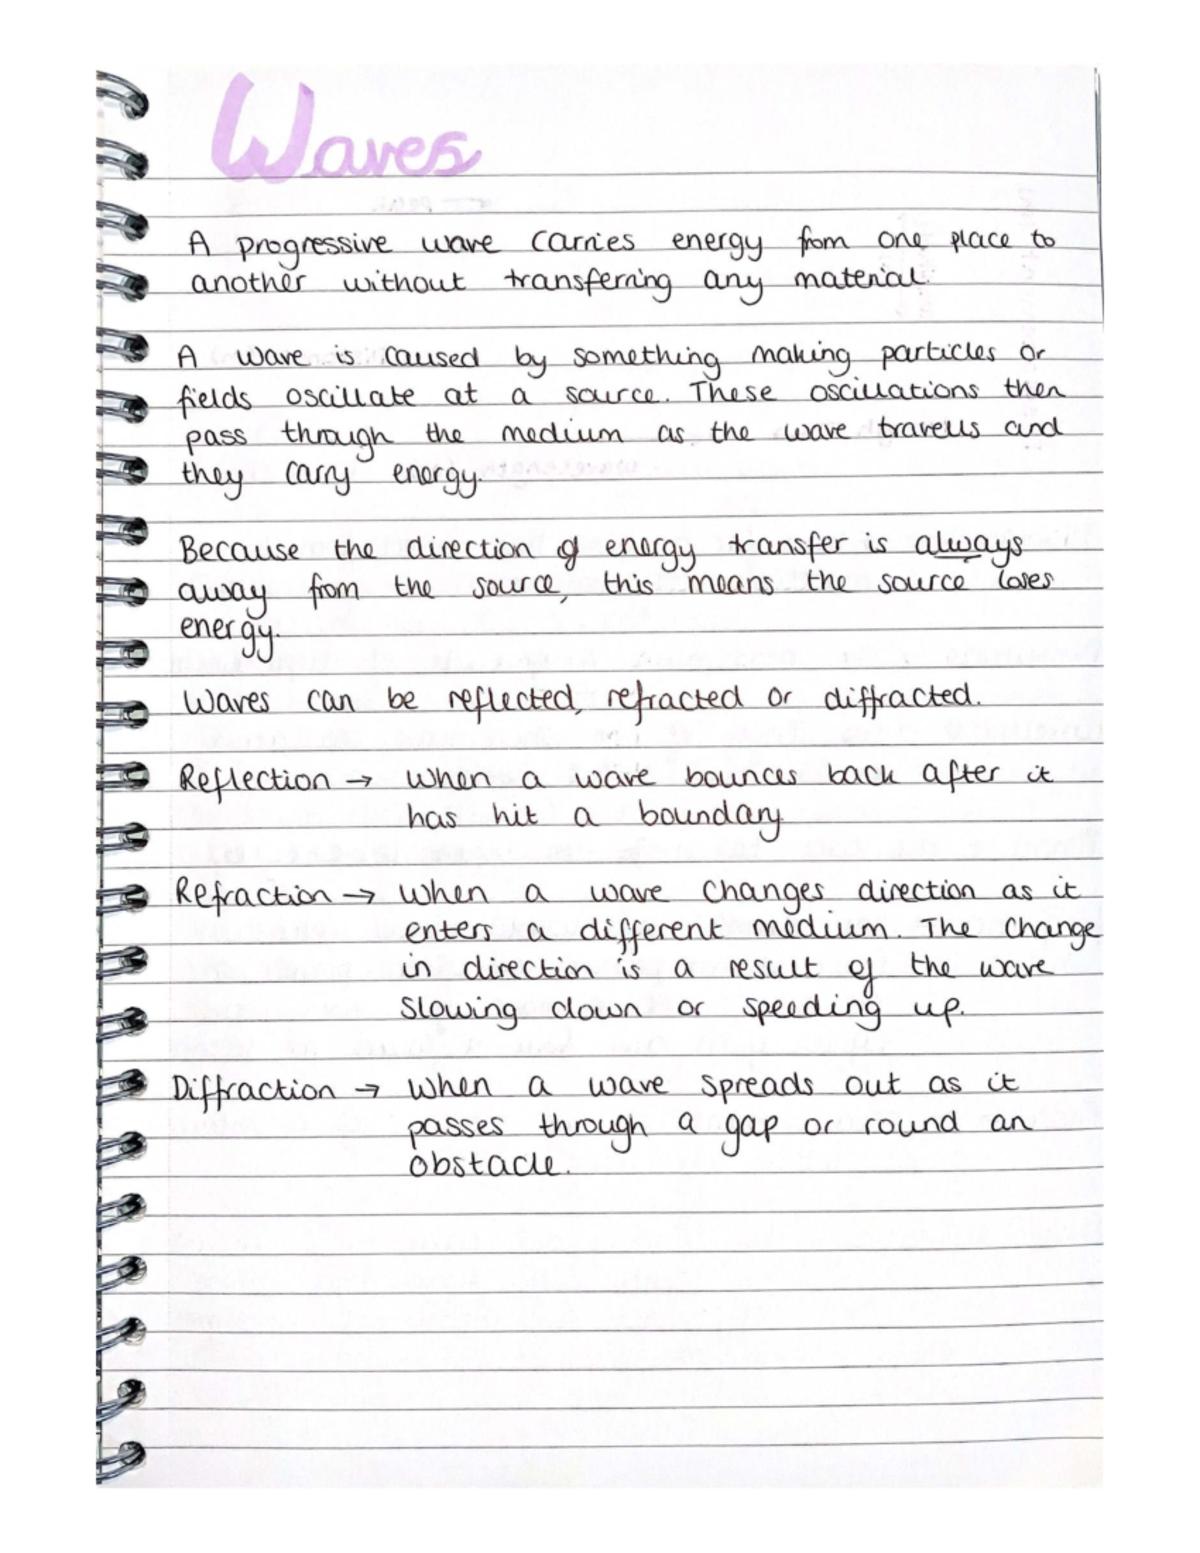 Waves
A progressive wave carries energy from one place to
another without transferring any material.
A wave is caused by something making particles or
fields oscillate at a source. These oscillations then
pass through the medium as the wave travells and
they carry energy.
Because the direction of energy transfer is always
away from the source, this means the source loses
energy.
Waves can be reflected, refracted or diffracted.
Reflection → when a wave bounces back after it
has hit a boundary.
Refraction → when a wave changes direction as it
enters a different medium. The change
in direction is a result of the wave
slowing down or speeding up.
Diffraction → when a wave spreads out as it
passes through a gap or round an
obstacle.